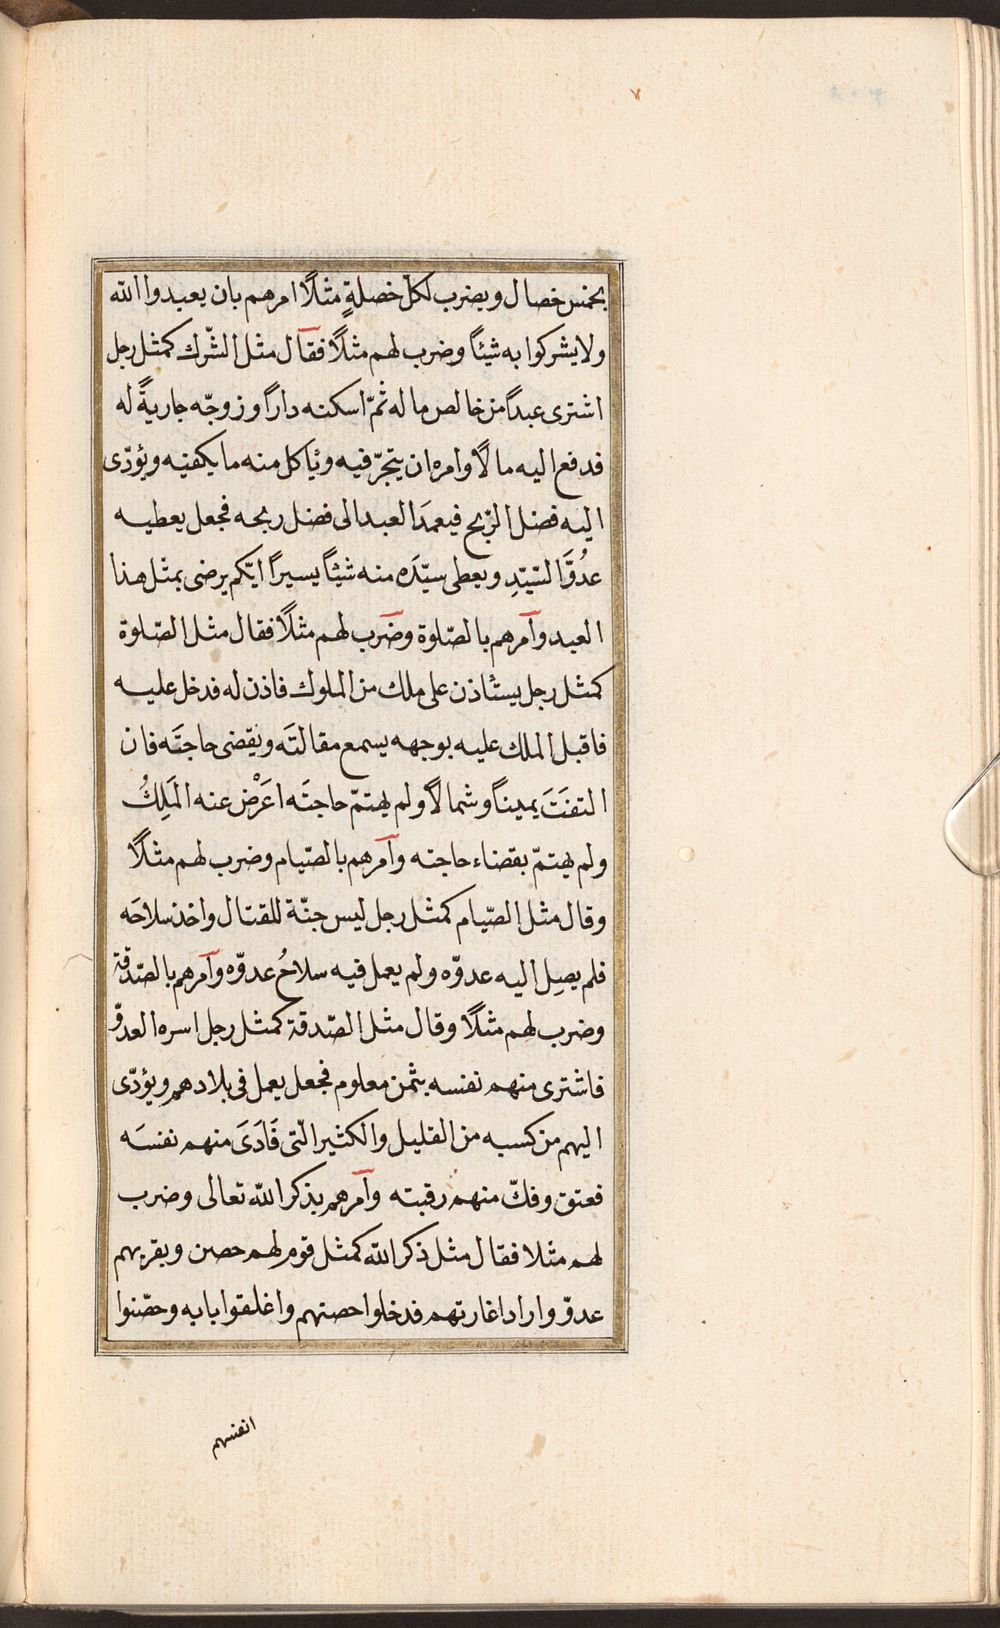 ٧
بخمس خصال ويضرب لكلّ خصلةٍ مثلًا امرهم بان يعبدوا الله
ولا يشركوا به شيئًا وضرب لهم مثلًا فقال مثل الشّرك كمثل رجل
اشترى عبدًا من خالص ماله ثمّ اسكنه دارًا وزوجّه جاريةً له
فدفع اليه مالًا وامره ان يتجرّ فيه وياكل منه ما يكفيه ويؤدّى
اليه فضل الرّبح فيعمدَ العبد الى فضل ربحه فجعل يعطيه
عدُوَّ السّيّدِ ويعطى سيّدَه منه شيئًا يسيرًا ايّكم يرضى بمثل هذا
العبد وآمرهم بالصّلوة وضرب لهم مثلًا فقال مثل الصّلوة
كمثل رجل يستأذن على ملك من الملوك فاذن له فدخل عليه
فاقبل الملك عليه بوجهه يسمع مقالتَه ويقضى حاجتَه فان
التفتَ يمينًا وشمالًا ولم يهتمّ حاجتَه اعَرْض عنه المَلِكُ
ولم يهتمّ بقضاء حاجته وآمرهم بالصّيام وضرب لهم مثلًا
وقال مثل الصّيام كمثل رجل لبس جنّة للقتال واخذ سلاحَه
فلم يصِل اليه عدوّه ولم يعمل فيه سلاحُ عدوّه وآمرهم بالصّدقة
وضرب لهم مثلًا وقال مثل الصّدقة كمثل رجل اسره العدوّ
فاشترى منهم نفسه بثمن معلوم فجعل يعمل فى بلادهم ويؤدّى
اليهم من كسبه من القليل والكثير الّتى فَادَىَ منهم نفسَه
فعتق وفكّ منهم رقبته وآمرهم بذكر الله تعالى وضرب
لهم مثلا فقال مثل ذكر الله كمثل قوم لهم حصن وبقربهم
عدوّ واراد اغارتهم فدخلوا حصنهم واغلقوا بابه وحصّنوا
انفسهم